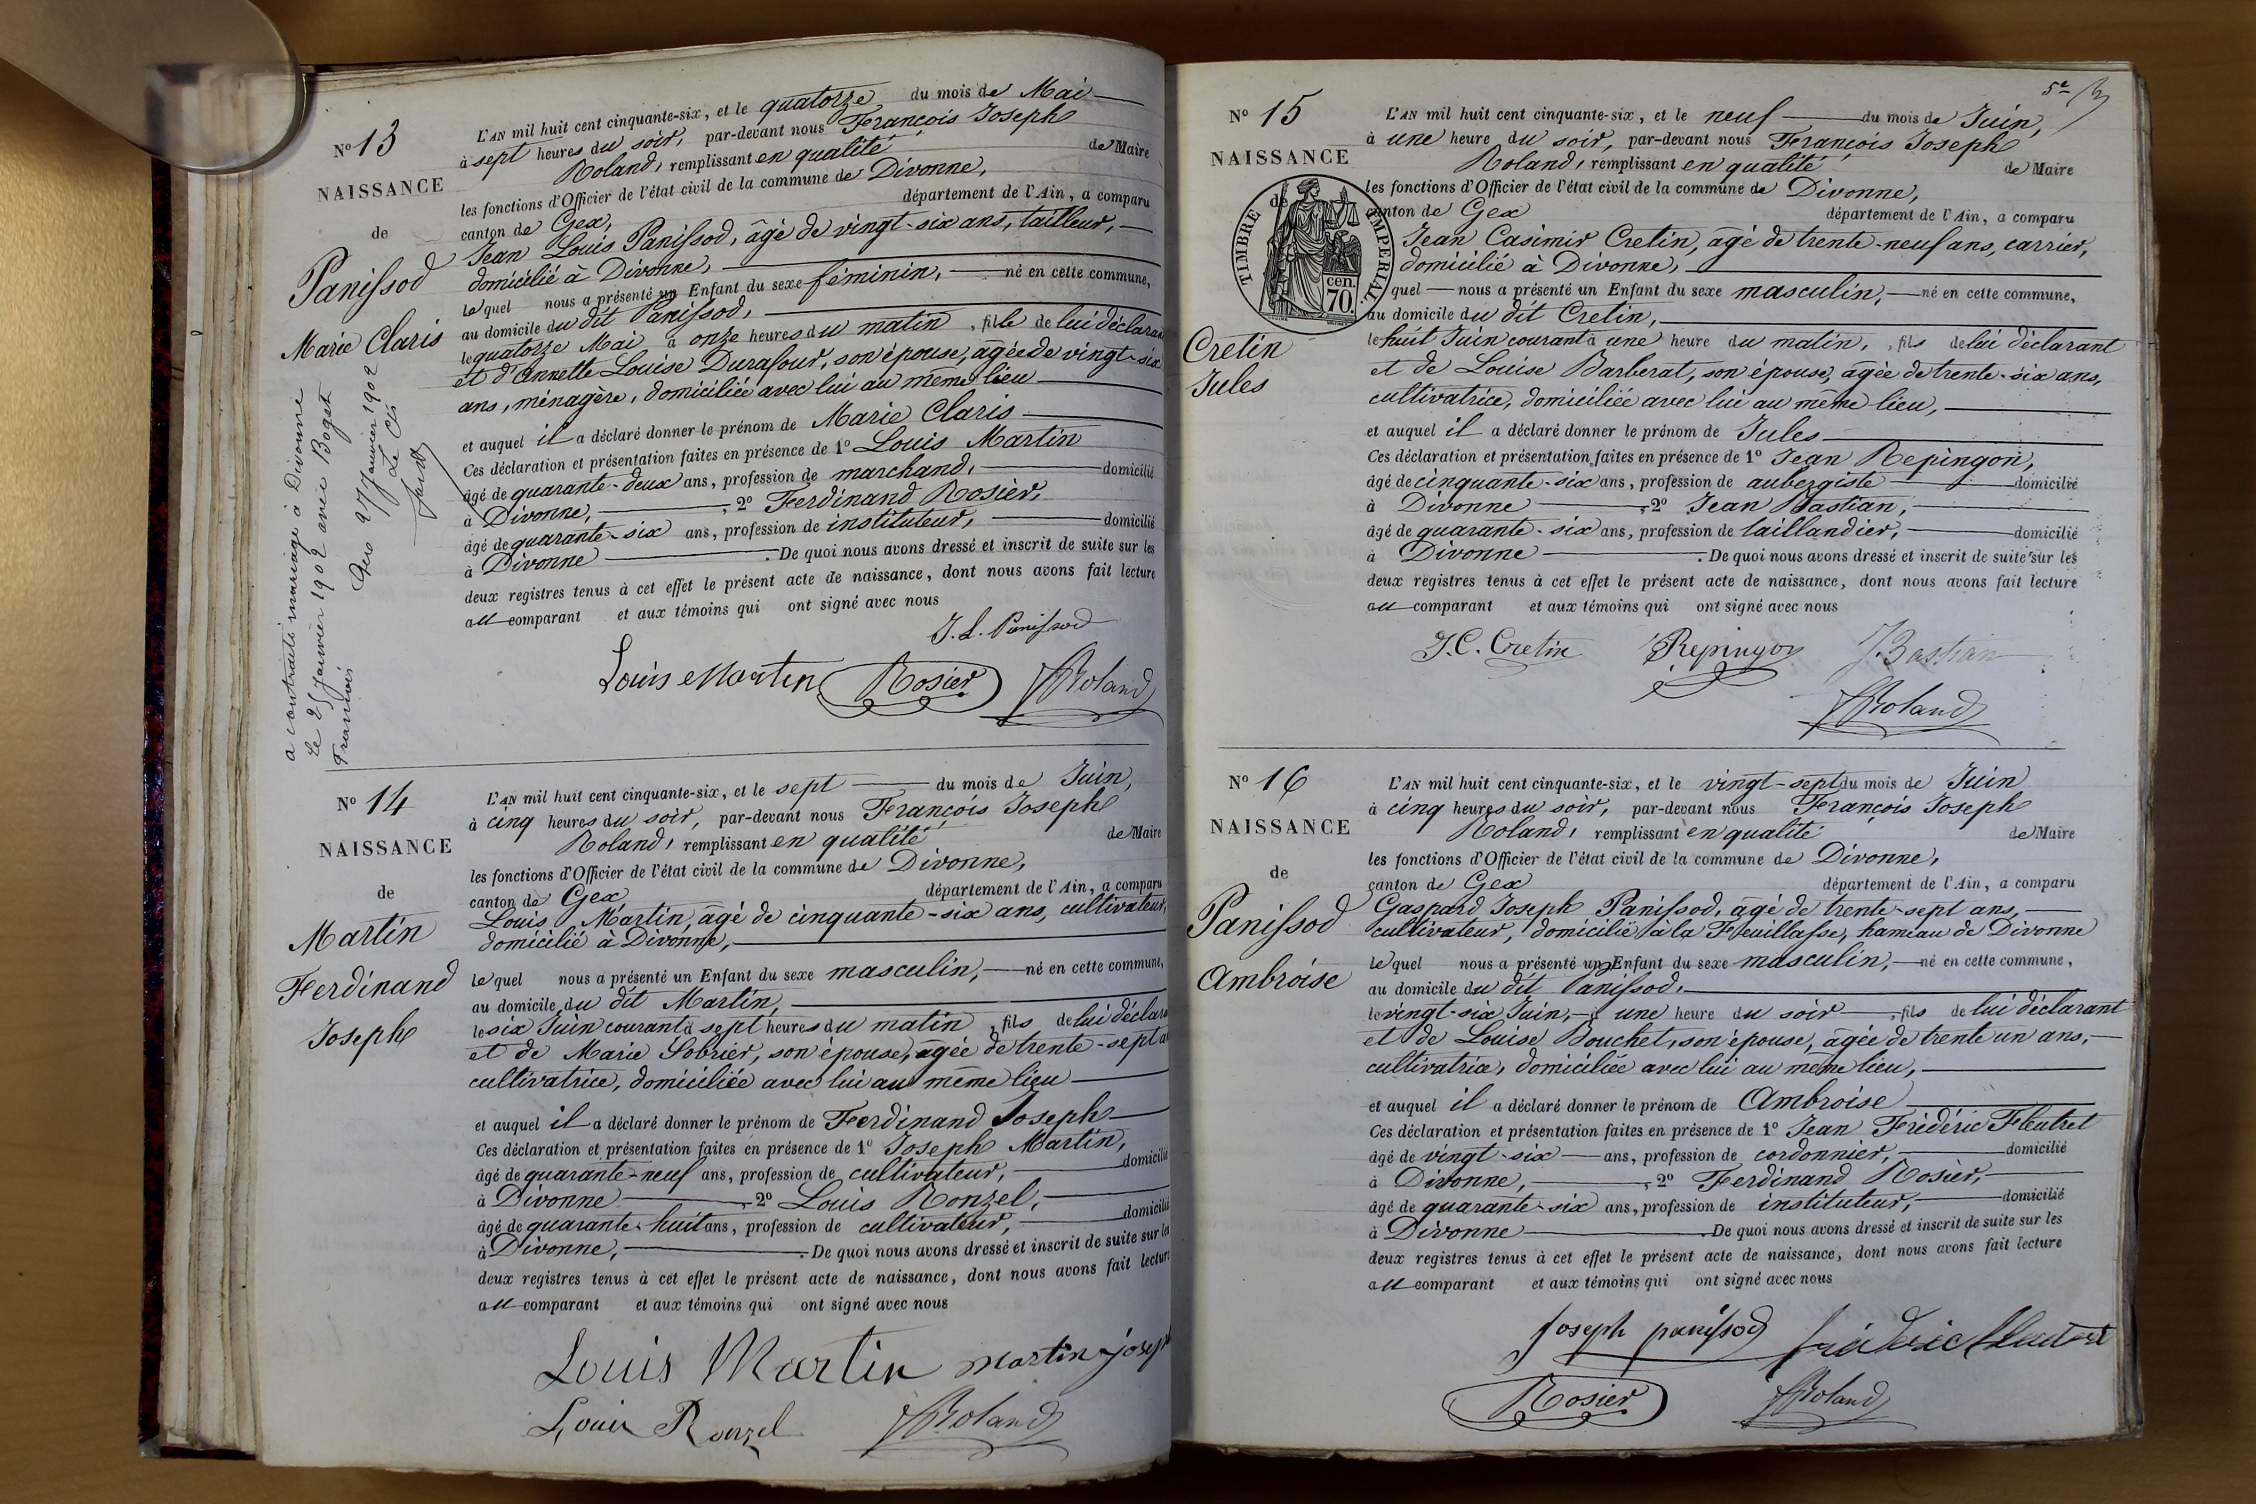 N° 13
NAISSANCE
de
Panissod
Marie Claris
a contracté mariage à Divonne
le 2 janvier 1902 avec Boget
François
Gex 27 Janvier 1902
Le Cis
L'AN mil huit cent cinquante-six, et le quatorze du mois de Mai
à sept heures du soir, par-devant nous François Joseph
Roland, remplissant en qualité de Maire
les fonctions d'Officier de l'état civil de la commune de Divonne,
canton de Gex, département de l'Ain, a comparu
Jean Louis Panissod, âgé de vingt-six ans, tailleur,
domicilié à Divonne,
lequel nous a présenté un Enfant du sexe féminin, né en cette commune,
au domicile du dit Panissod,
le quatorze Mai à onze heures du matin, fille de lui déclarant
et d'Annette Louise Durafour, son épouse, âgée de vingt-six
ans, ménagère, domiciliée avec lui au même lieu
et auquel il a déclaré donner le prénom de Marie Claris
Ces déclaration et présentation faites en présence de 1° Louis Martin
âgé de quarante-deux ans, profession de marchand, domicilié
à Divonne, 2° Ferdinand Rosier,
âgé de quarante-six ans, profession de instituteur, domicilié
à Divonne. De quoi nous avons dressé et inscrit de suite sur les
deux registres tenus à cet effet le présent acte de naissance, dont nous avons fait lecture
au comparant et aux témoins qui ont signé avec nous
J. L. Panissod
Louis Martin Rosier Roland
N° 14
NAISSANCE
de
Martin
Ferdinand
Joseph
L'AN mil huit cent cinquante-six, et le sept du mois de Juin,
à cinq heures du soir, par-devant nous François Joseph
Roland, remplissant en qualité de Maire
les fonctions d'Officier de l'état civil de la commune de Divonne,
canton de Gex département de l'Ain, a comparu
Louis Martin, âgé de cinquante-six ans, cultivateur,
domicilié à Divonne,
lequel nous a présenté un Enfant du sexe masculin, né en cette commune,
au domicile du dit Martin,
le six Juin courant à sept heures du matin, fils de lui déclara
et de Marie Sobrier, son épouse, âgée de trente-sept a
cultivatrice, domiciliée avec lui au même lieu
et auquel il a déclaré donner le prénom de Ferdinand Joseph
Ces déclaration et présentation faites en présence de 1° Joseph Martin,
âgé de quarante-neuf ans, profession de cultivateur, domicilié
à Divonne, 2° Louis Ronzel,
âgé de quarante-huit ans, profession de cultivateur, domicilié
à Divonne,. De quoi nous avons dressé et inscrit de suite sur les
deux registres tenus à cet effet le présent acte de naissance, dont nous avons fait lecture
au comparant et aux témoins qui ont signé avec nous
Louis Martin martin joseph
Louis Ronzel Roland
5e
N° 15
NAISSANCE
de
TIMBRE IMPERIAL.
70. cen.
Cretin
Jules
L'AN mil huit cent cinquante-six, et le neuf du mois de Juin,
à une heure du soir, par-devant nous François Joseph
Roland, remplissant en qualité de Maire
les fonctions d'Officier de l'état civil de la commune de Divonne,
canton de Gex département de l'Ain, a comparu
Jean Casimir Cretin, âgé de trente-neuf ans, carrier,
domicilié à Divonne,
quel nous a présenté un Enfant du sexe masculin, né en cette commune,
au domicile du dit Cretin,
le huit Juin courant à une heure du matin, fils de lui déclarant
et de Louise Barberat, son épouse, âgée de trente-six ans,
cultivatrice, domiciliée avec lui au même lieu,
et auquel il a déclaré donner le prénom de Jules
Ces déclaration et présentation faites en présence de 1° Jean Repingon,
âgé de cinquante-six ans, profession de aubergiste domicilié
à Divonne, 2° Jean Bastian,
âgé de quarante-six ans, profession de taillandier, domicilié
à Divonne. De quoi nous avons dressé et inscrit de suite sur les
deux registres tenus à cet effet le présent acte de naissance, dont nous avons fait lecture
au comparant et aux témoins qui ont signé avec nous
J. C. Cretin Repingon J. Bastian
Roland
N° 16
NAISSANCE
de
Panissod
Ambroise
L'AN mil huit cent cinquante-six, et le vingt-sept du mois de Juin
à cinq heures du soir, par-devant nous François Joseph
Roland, remplissant en qualité de Maire
les fonctions d'Officier de l'état civil de la commune de Divonne,
canton de Gex département de l'Ain, a comparu
Gaspard Joseph Panissod, âgé de trente-sept ans,
cultivateur, domicilié à la Feuillasse, hameau de Divonne
lequel nous a présenté un Enfant du sexe masculin, né en cette commune,
au domicile du dit Panissod,
le vingt-six Juin, à une heure du soir, fils de lui déclarant
et de Louise Bouchet, son épouse, âgée de trente un ans,
cultivatrice, domiciliée avec lui au même lieu,
et auquel il a déclaré donner le prénom de Ambroise
Ces déclaration et présentation faites en présence de 1° Jean Frédéric Fleutret
âgé de vingt-six ans, profession de cordonnier, domicilié
à Divonne, 2° Ferdinand Rosier,
âgé de quarante-six ans, profession de instituteur, domicilié
à Divonne. De quoi nous avons dressé et inscrit de suite sur les
deux registres tenus à cet effet le présent acte de naissance, dont nous avons fait lecture
au comparant et aux témoins qui ont signé avec nous
joseph panissod frédéric fleutret
Rosier Roland